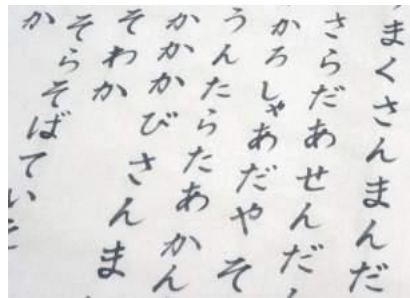 まくさんまんだ
さらだあせんだ
かろしゃあだやそ
うんたらたあかん
かかかびさんま
そわか
そらそばていそ
か